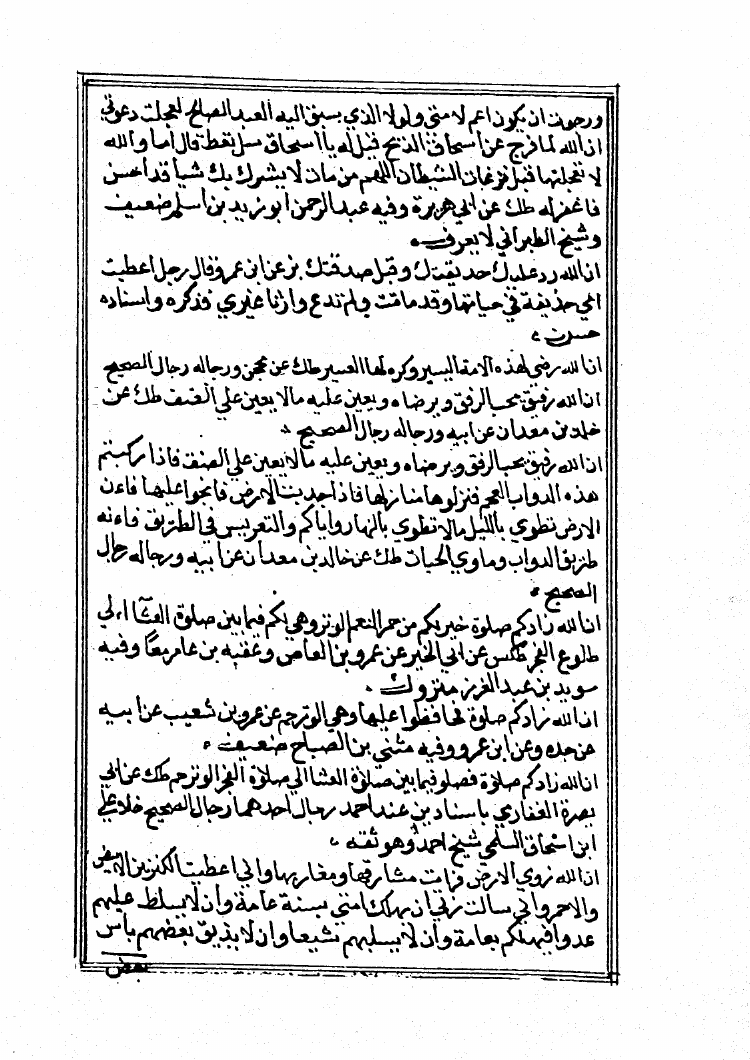 ورجوت ان يكون اعم لامتي ولولا الذي سبقني اليه العبد الصالح لعجلت دعوتي
ان الله لما فرج عن اسحاق الذبح قيل له يا اسحاق سل تعط قال اما والله
لا تعجلنها قبل نزغات الشيطان اللهم من مات لا يشرك بك شيا قد احسن
فاغفر له طك عن ابي هريرة وفيه عبد الرحمن ابو زيد بن اسلم ضعيف
وشيخ الطبراني لا يعرف
ان الله رد عليك حديقتك وقبل صدقتك بز عن ابن عمرو قال رجل اعطيت
امي حذيفة في حياتها وقد ماتت ولم تدع وارثا غيري فذكره واسناده
حسن
ان الله رضي لهذه الامة اليسير وكره لها العسير طك عن محجن ورجاله رجال الصحيح
ان الله رفيق يحب الرفق ويرضاه ويعين عليه مالا يعين علي العنف طك عن
خلد بن معدان عن ابيه ورجاله رجال الصحيح
ان الله رفيق يحب الرفق ويرضاه ويعين عليه مالا يعين علي العنف فاذا ركبتم
هذه الدواب العجم فنزلوها منازلها فاذا اجدبت الارض فانجوا عليها فاءن
الارض تطوي بالليل مالا تطوي بالنهار واياكم والتعريس في الطريق فاءنه
طريق الدواب وماوي الحيات طك عن خالد بن معدان عن ابيه ورجاله رجال
الصحيح
ان الله زادكم صلوة خير لكم من حمر النعم الوتر وهي لكم فيما بين صلوة العشاء الي
طلوع الفجر طكس عن ابي الخير عن عمرو بن العاص وعقبه بن عامر معا وفيه
سويد بن عبد العزيز متروك
ان الله زادكم صلوة فحافظوا عليها وهي الوتر حم عن عمرو بن شعيب عن ابيه
عن جده وعن ابن عمرو وفيه مثني بن الصباح ضعيف
ان الله زادكم صلاة فصلو فيما بين صلوة العشا الي صلاة الفجر الوتر حم طك عن ابي
بصرة الغفاري باسنادين عند احمد رجال احدهما رجال الصحيح خلا علي
ابن اسحاق السلمي شيخ احمد وهو ثقه
ان الله زوي الارض فرات مشارقها ومغاربها واني اعطيت الكنزين الابيض
والاحمر واني سالت ربي ان يهلك امتي بسنة عامة وان لا يسلط عليهم
عدوا فيهلكهم بعامة وان لا يلبسهم شيعا وان لا يذيق بعضهم باس
بعض